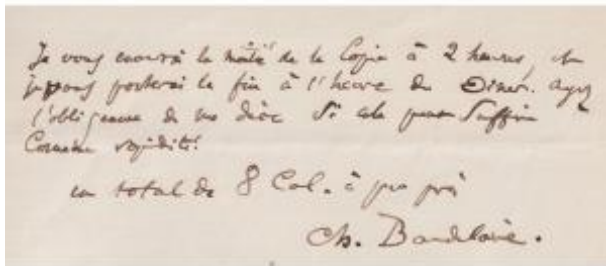 Je vous enverrai la moitié de la Copie à 2 heures, et
je vous porterai la fin à l'heure du Diner. ayez
l'obligeance de me dire si cela pourra suffire
Comme rapidité.
un total de 8 Col. à peu près
Ch. Baudelaire.